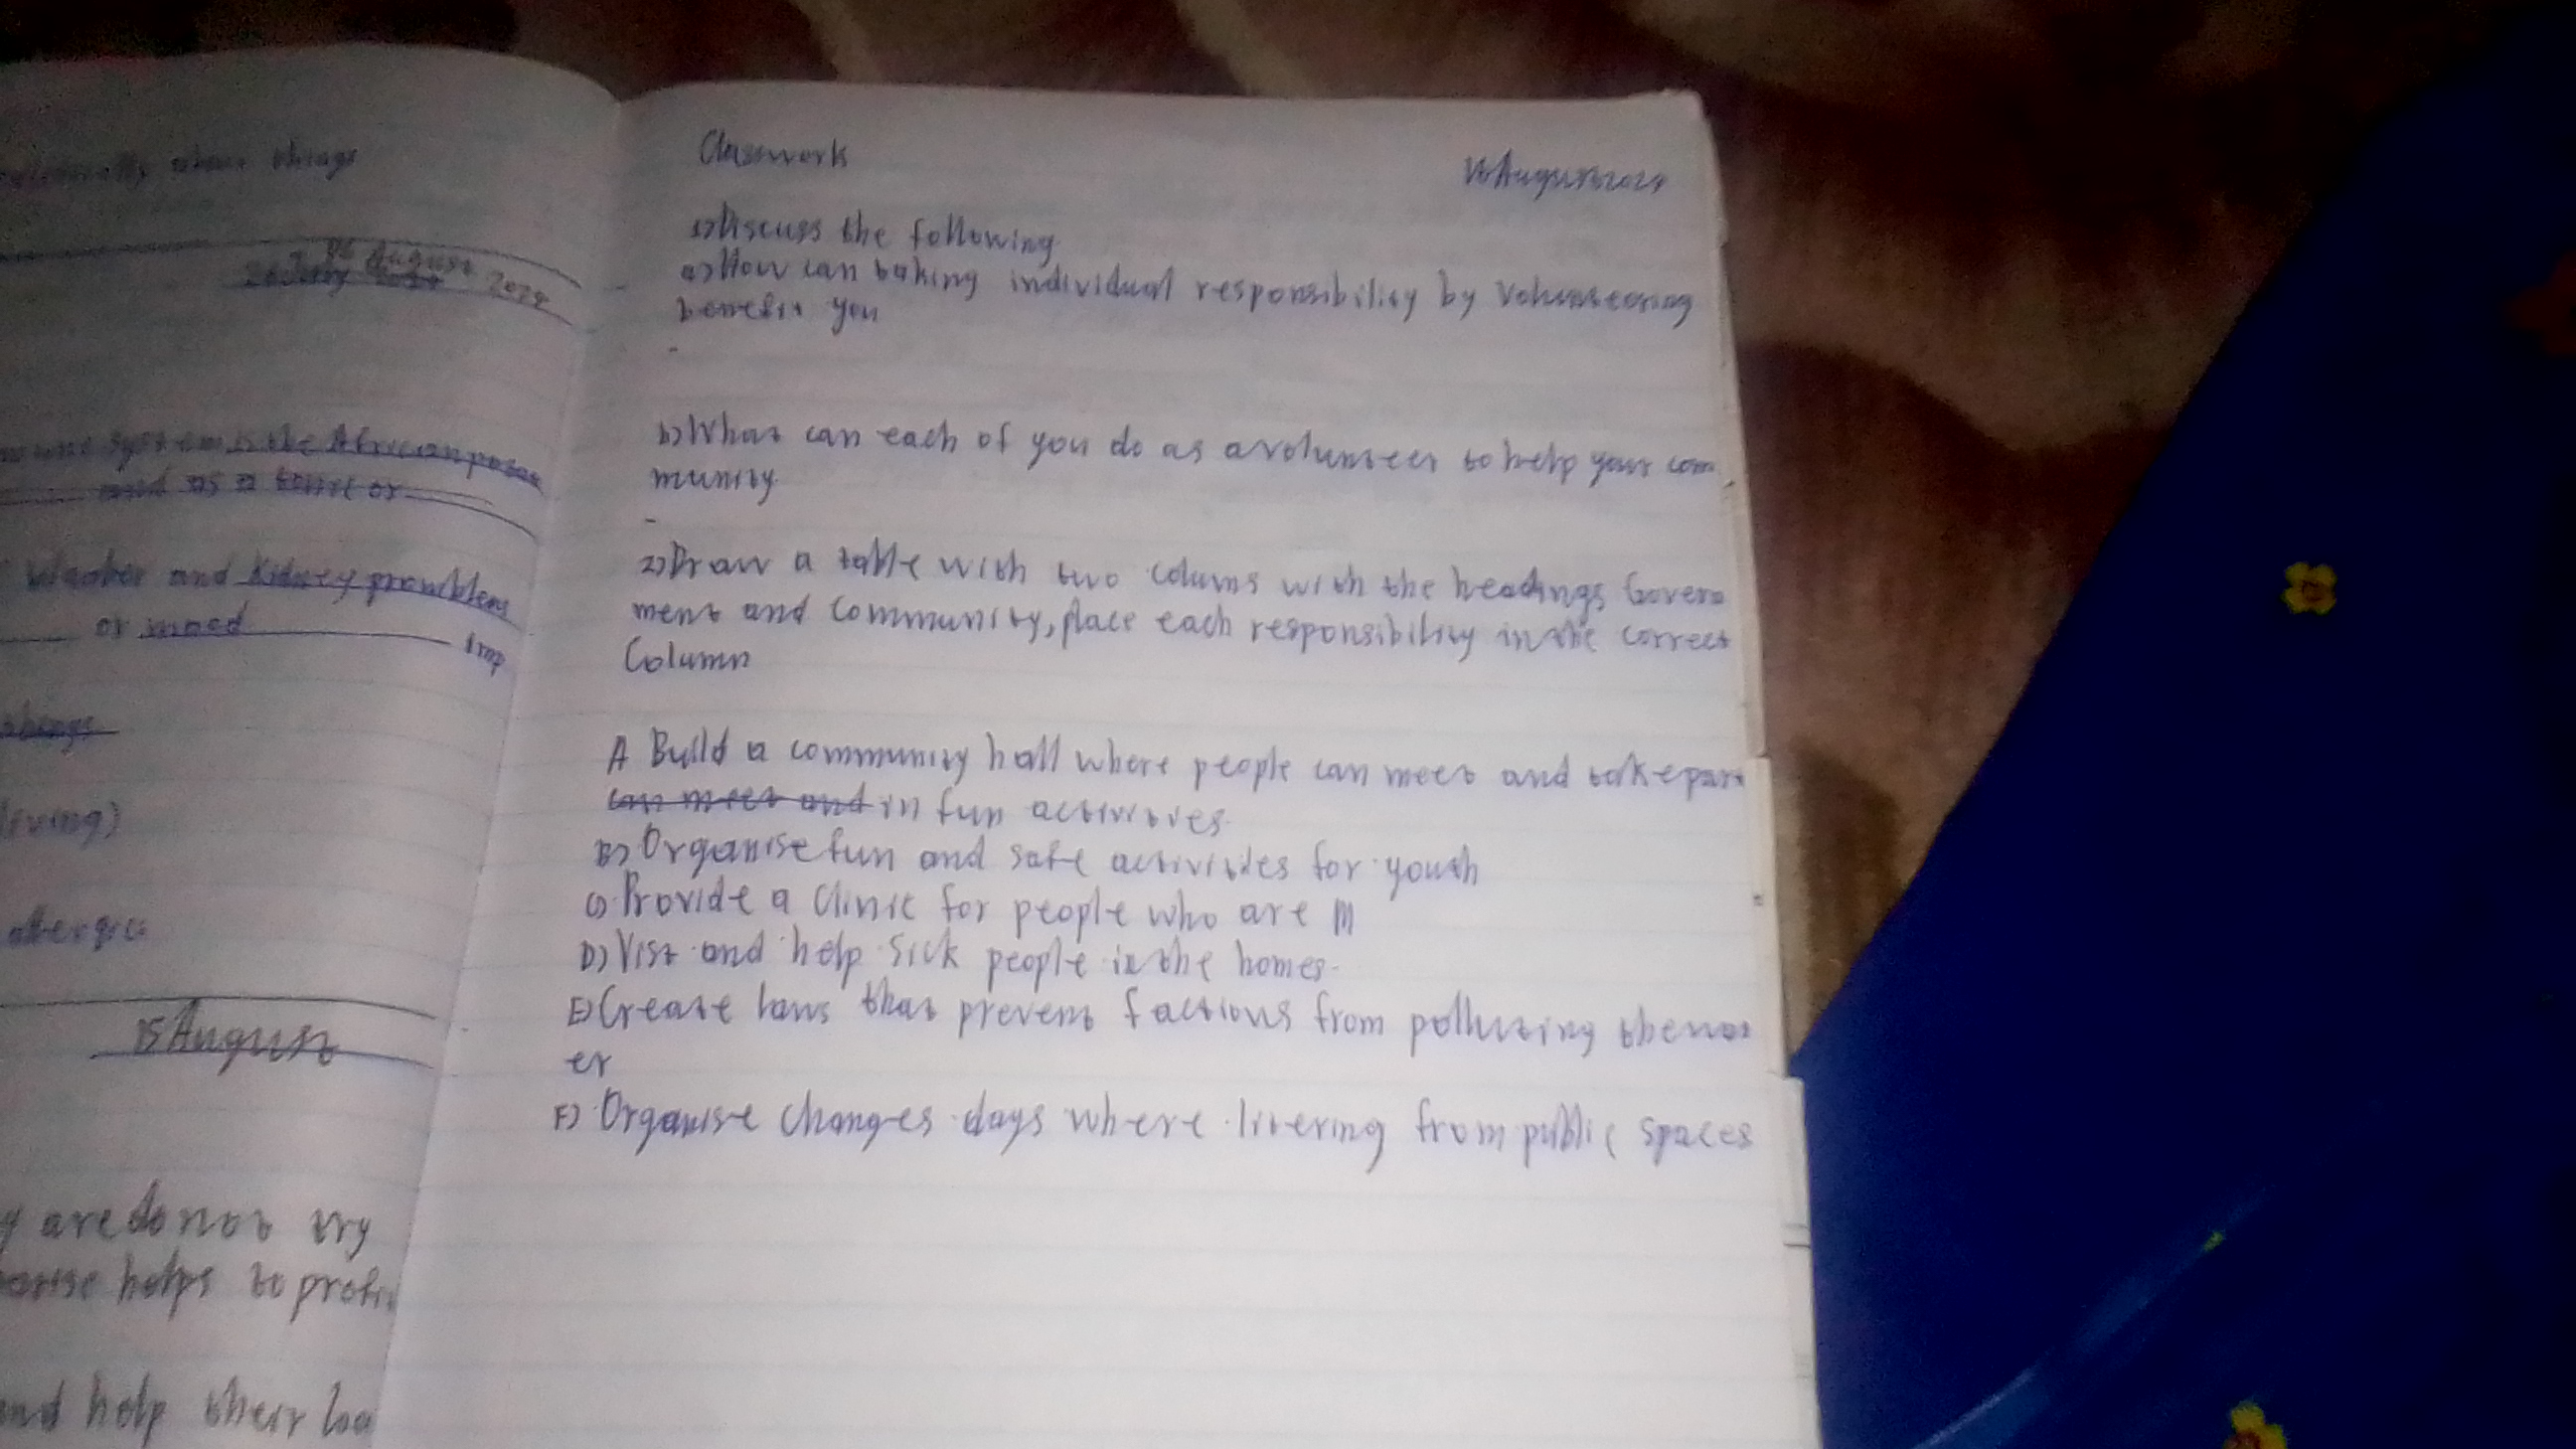 things
06 August 2024
and as a
Washer and Kidney promblems
or mood
Imp
things
living)
15 August
y are do not try
helps to
and help their
Classwork
16 August 2024
1) Discuss the following
a) How can taking individual responsibility by Volunteering
benefit you
-
b) What can each of you do as a volunteer to help your com
munity
-
2) Draw a table with two colums with the headings Govern
ment and Community, place each responsibility in the correct
Column
A Build a community hall where people can meet and take part
can meet and in fun activities
B) Organise fun and safe activities for youth
C) Provide a Clinic for people who are ill
D) Vist and help sick people in the homes.
E) Create laws that prevent factions from polluting the wat
er
F) Organise changes days where litering from public spaces